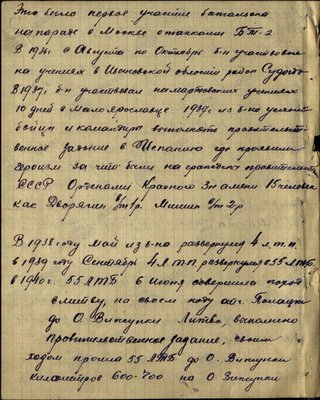 Это было первое участие батальона
на параде в Москве с танками БТ-2
В 1936г с Августа по Октябрь б-н участвовал
на учениях в Ивановской области район Судогда
В 1937г. б-н участвовал на мартовских учениях
10 дней в Малоярославце 1937г. из б-на
бойцы и командиры выполнять правительст-
венное задание в Испанию где проявили
героизм за что были награждены правительством
СССР Орденами Красного Знамени 15 человек
как Дворягин
В 1938 году май из б-на развернулся 4 л.т.п.
в 1939 году Сентябрь 4 ЛТП развернулся 55 ЛТБ
в 1940г. 55 ЛТБ 6 Июня совершила поход
в Литву, на своем ходу от г. Полацка
до О. Литва, выполнено
правительственное задание, своим
ходом прошла 55 ЛТБ до О.
километров 600-700 на О